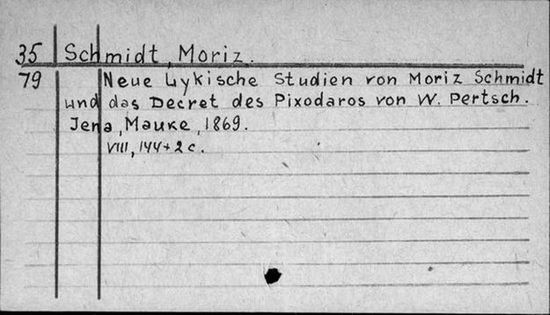 35 Schmidt, Moriz.
79 Neue Lykische Studien von Moriz Schmidt
und das Decret des Pixodaros von W. Pertsch.
Jena, Mauke, 1869.
VIII, 144+2 c.